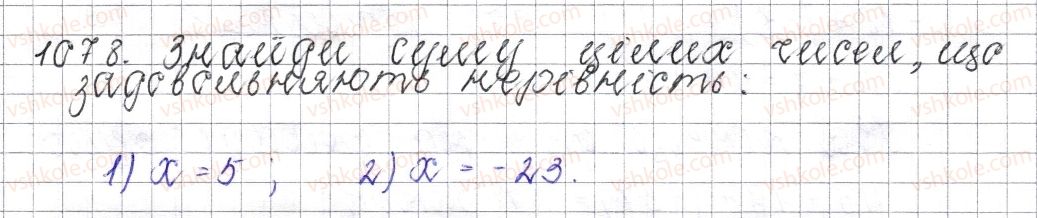 1078. Знайди суму цілих чисел, що
задовольняють нерівність:
1) x = 5 ; 2) x = -23.